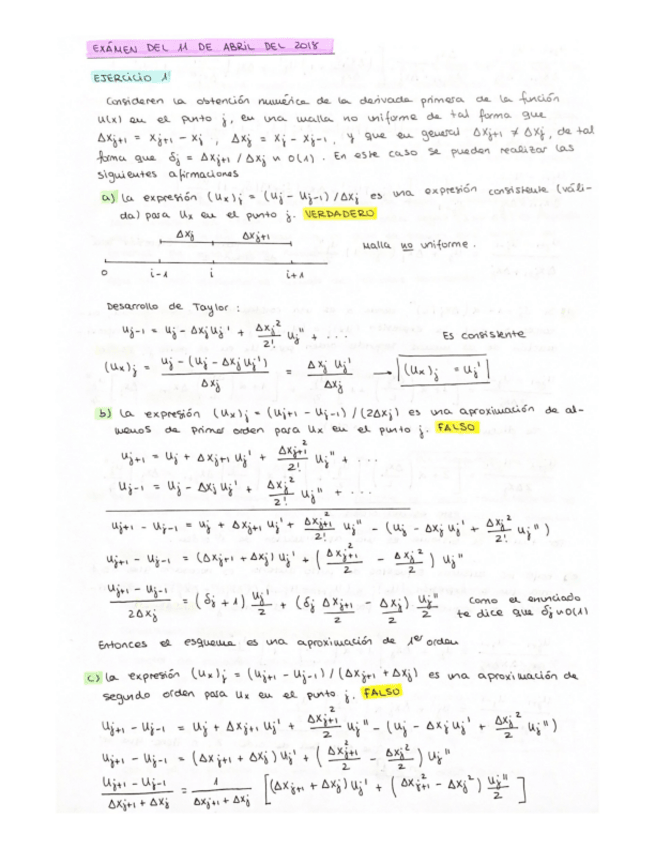 EXÁMEN DEL 11 DE ABRIL DEL 2018
EJERCICIO 1
Consideren la obtención numérica de la derivada primera de la función
u(x) en el punto j, en una malla no uniforme de tal forma que
Δxj+1 = xj+1 - xj , Δxj = xj - xj-1, y que en general Δxj+1 ≠ Δxj, de tal
forma que δj = Δxj+1 / Δxj ~ O(1). En este caso se pueden realizar las
siguientes afirmaciones
a) La expresión (ux)j = (uj - uj-1) / Δxj es una expresión consistente (váli-
da) para ux en el punto j. VERDADERO
Δxj Δxj+1
Malla no uniforme.
0 i-1 i i+1
Desarrollo de Taylor :
uj-1 = uj - Δxj uj' + Δxj²/2! uj'' + ...
Es consistente
(ux)j = uj - (uj - Δxj uj') / Δxj = Δxj uj' / Δxj → (ux)j = uj'
b) La expresión (ux)j = (uj+1 - uj-1) / (2Δxj) es una aproximación de al-
menos de primer orden para ux en el punto j. FALSO
uj+1 = uj + Δxj+1 uj' + Δxj+1²/2! uj'' + ...
uj-1 = uj - Δxj uj' + Δxj²/2! uj'' + ...
uj+1 - uj-1 = uj + Δxj+1 uj' + Δxj+1²/2! uj'' - (uj - Δxj uj' + Δxj²/2! uj'')
uj+1 - uj-1 = (Δxj+1 + Δxj) uj' + (Δxj+1²/2 - Δxj²/2) uj''
uj+1 - uj-1 / 2Δxj = (δj + 1) uj'/2 + (δj Δxj+1/2 - Δxj/2) uj''/2 como el enunciado
te dice que δj ~ O(1)
Entonces el esquema es una aproximación de 1er orden
c) La expresión (ux)j = (uj+1 - uj-1) / (Δxj+1 + Δxj) es una aproximación de
segundo orden para ux en el punto j. FALSO
uj+1 - uj-1 = uj + Δxj+1 uj' + Δxj+1²/2 uj'' - (uj - Δxj uj' + Δxj²/2 uj'')
uj+1 - uj-1 = (Δxj+1 + Δxj) uj' + (Δxj+1²/2 - Δxj²/2) uj''
uj+1 - uj-1 / Δxj+1 + Δxj = 1 / Δxj+1 + Δxj [(Δxj+1 + Δxj) uj' + (Δxj+1² - Δxj²) uj''/2]